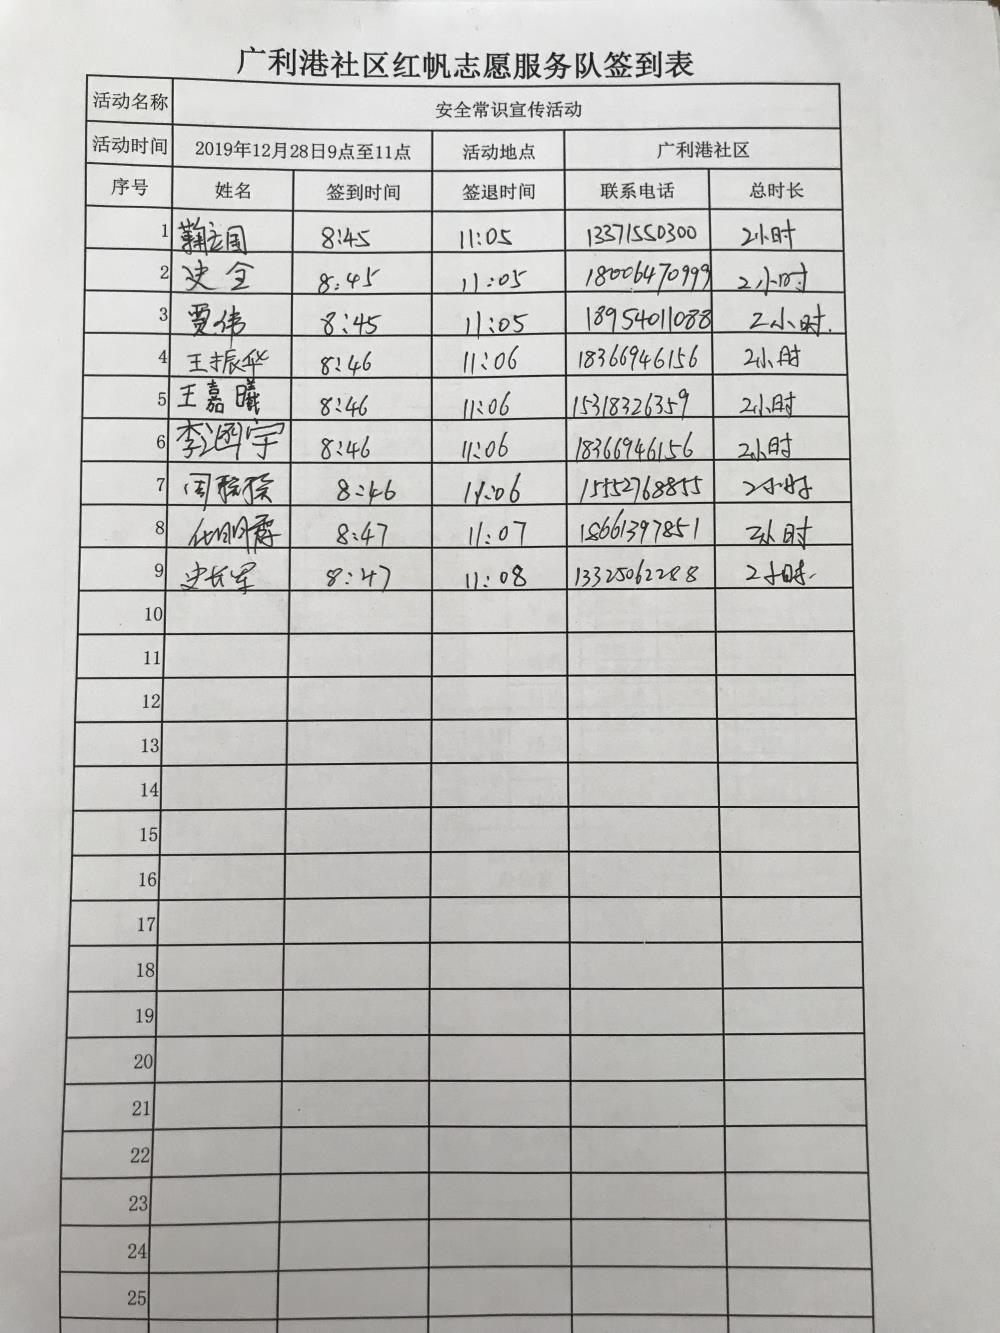 广利港社区红帆志愿服务队签到表
活动名称 安全常识宣传活动
活动时间 2019年12月28日9点至11点 活动地点 广利港社区
序号 姓名 签到时间 签退时间 联系电话 总时长
1 鞠立国 8:45 11:05 13371550300 2小时
2 史全 8:45 11:05 18006470999 2小时
3 贾伟 8:45 11:05 18954011088 2小时.
4 王振华 8:46 11:06 18366946156 2小时
5 王嘉曦 8:46 11:06 15318326359 2小时
6 李涵宇 8:46 11:06 18366946156 2小时
7 周 8:46 11:06 15552768855 2小时
8 8:47 11:07 18661397851 2小时
9 史长军 8:47 11:08 13325062288 2小时.
10
11
12
13
14
15
16
17
18
19
20
21
22
23
24
25